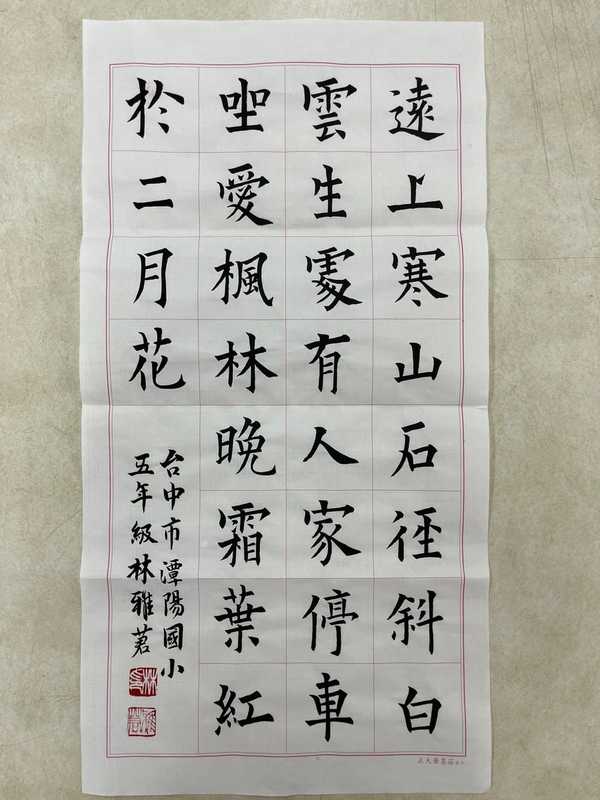 遠上寒山石徑斜白
雲生處有人家停車
坐愛楓林晚霜葉紅
於二月花
台中市潭陽國小
五年級林雅茗